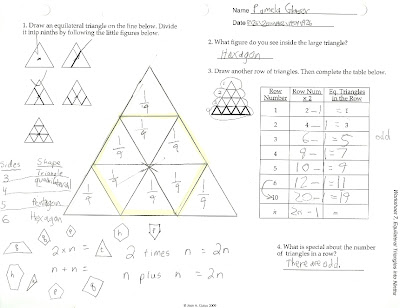 Name Pamela
Date
1. Draw an equilateral triangle on the line below. Divide
it into ninths by following the little figures below.
2. What figure do you see inside the large triangle?
Hexagon
3. Draw another row of triangles. Then complete the table below.
Row Number
Row Num x 2
Eq. Triangles in the Row
1 2-1 = 1
2 4-1 = 3
3 6-1 = 5
4 8-1 = 7
5 10-1 = 9
6 12-1 = 11
10 20-1 = 19
n 2n-1 n
odd
1/9
1/9
1/9
1/9
1/9
1/9
1/9
1/9
1/9
Sides Shape
3 Triangle
4
5 Pentagon
6 Hexagon
2 x n = 2 times n = 2n
n + n = n plus n = 2n
4. What is special about the number
of triangles in a row?
There are odd.
Worksheet 7, Equilateral Triangles into Ninths